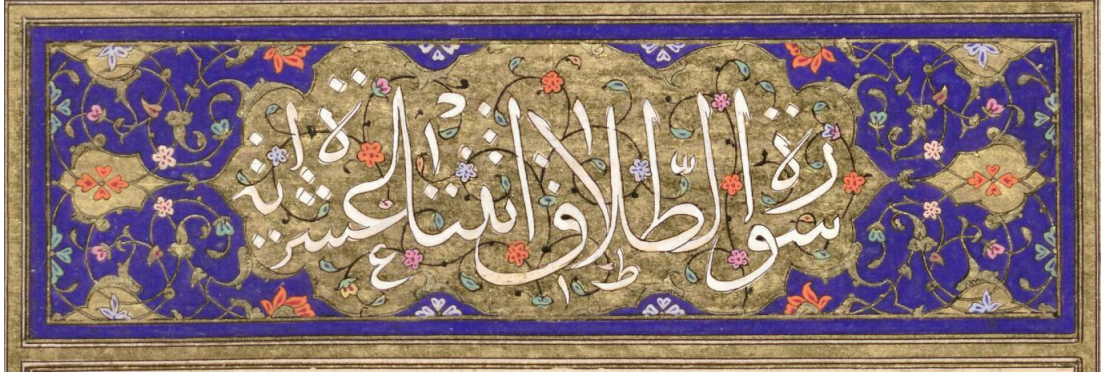 سورة الطلاق اثنتا عشرة اية